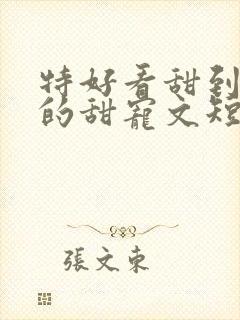 特好看甜到
的甜寵文短
張文東